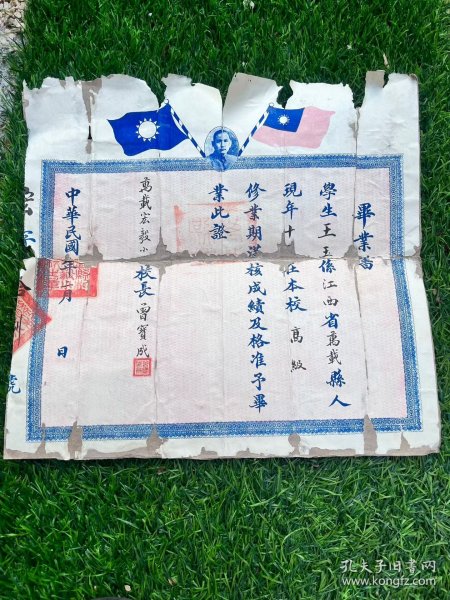 畢業證
學生王五係江西省萬載縣人
現年十 在本校高級
修業期滿核成績及格准予畢
業此證
萬載宏毅小 校長曾寶成
中華民國 年 月 日
號
孔夫子旧书网
www.kongfz.com